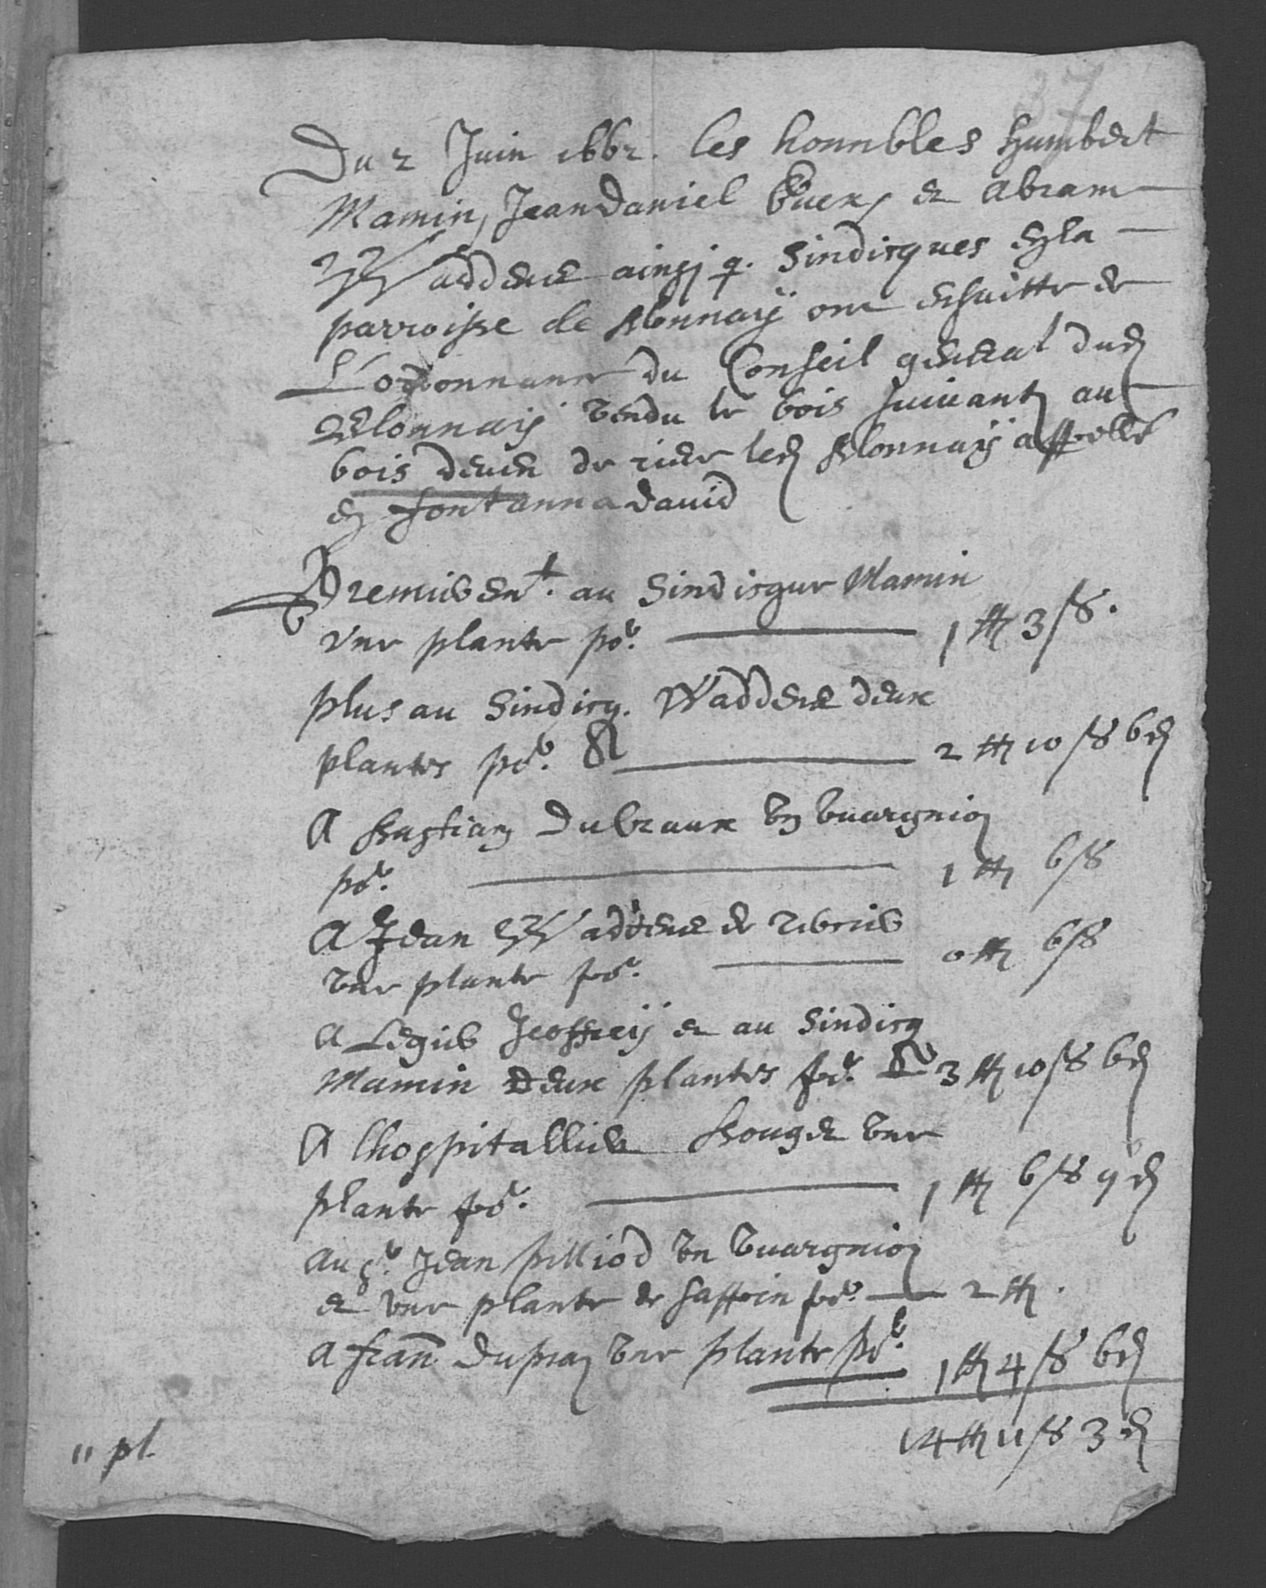 Du 2 Juin 1662. les honnbles Humbert
Mamin, Jean Daniel Buex, et Abram
Waddens ainsj q. Sindicques en la
parroisse de Blonnaÿ ont ensuitte de
L'ordonnance du Conseil general dud
Blonnaÿ vendu le bois suivant au
bois deven de rier led Blonnaÿ appellé
en fontanna david
Premierent. au Sindicque Mamin
vne plante po.r 1 tt 3 ß.
plus au Sindicq. Waddens deux
plantes po.r 2 tt 10 ß 6 d
A Bastian Dubraux vn vuargnion
po.r 1 tt 6 ß
A Jean Waddens de
vne plante po.r 0 tt 6 ß
A Legier Jeoffreÿ et au Sindicq
Mamin deux plantes po.r 3 tt 10 ß 6 d
A lhospitallier Bonget vne
plante po.r 1 tt 6 ß 9 d
Au s.r Jean pilliod vn vuargnion
et vne plante de sappin po.r 2 tt.
A fran Dupraz vne plante po.r 1 tt 4 ß 6 d
14 tt 11 ß 3 d
11 pl.